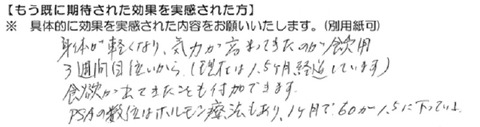 【もう既に期待された効果を実感された方】
※ 具体的に効果を実感された内容をお願いいたします。(別用紙可)
身体が軽くなり、気力が高まってきたのが飲用
3週間目位いから、(現在は1.5ヶ月経過しています)
食欲が出てきたことも付加できます。
PSAの数位はホルモン療法もあり、1ヶ月で60が1.5に下っている